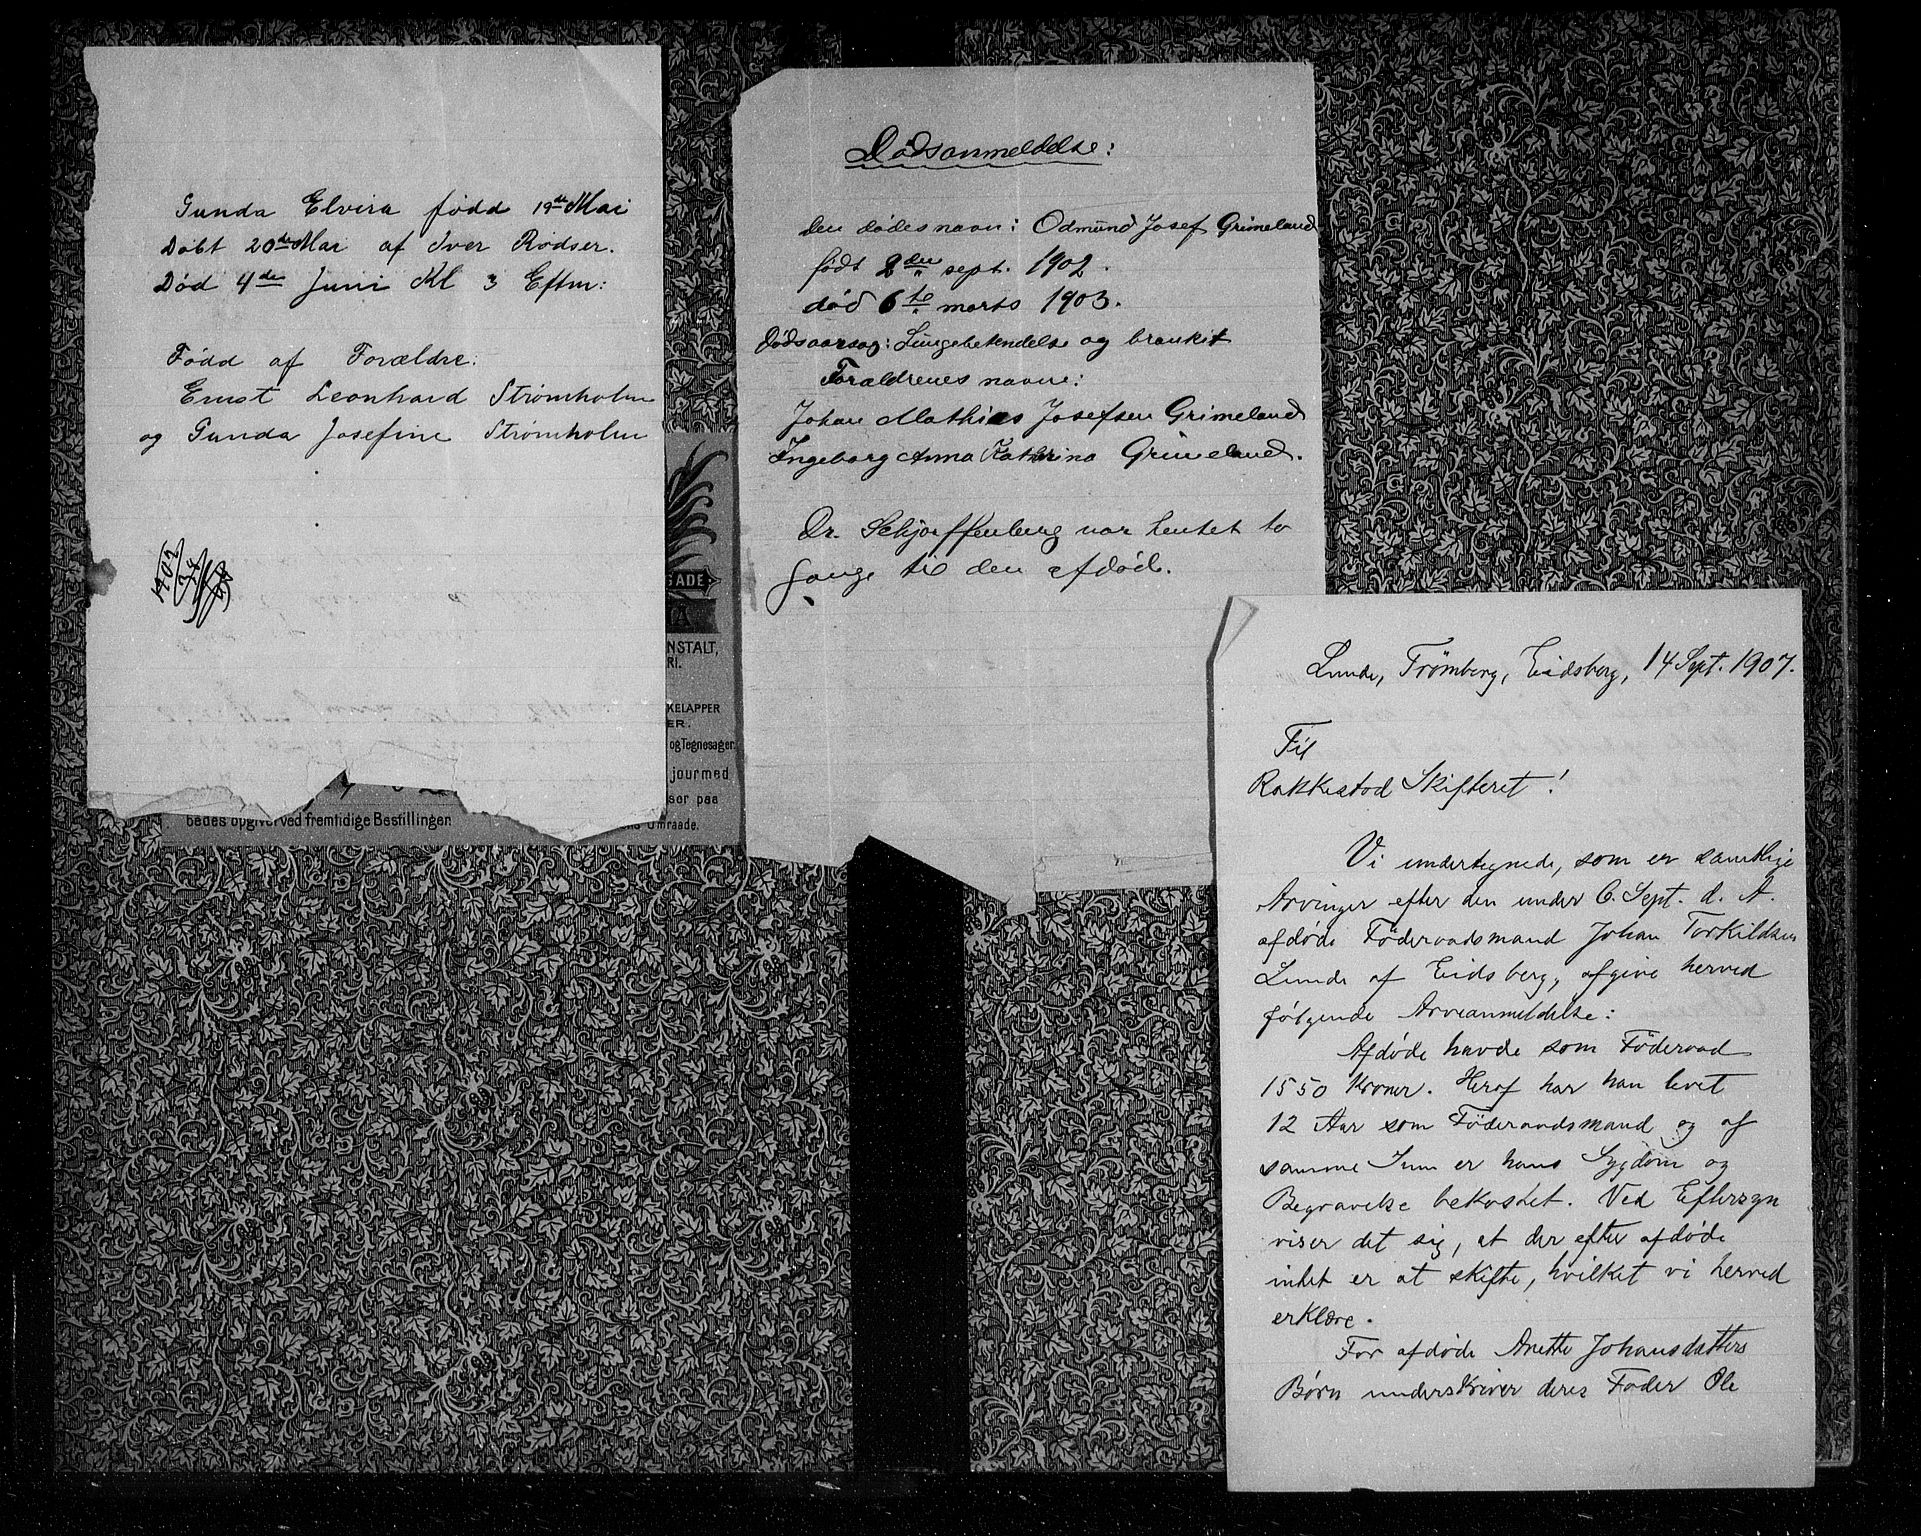 Gunda Elvira født 19de Mai
Døbt 20de Mai af Iver Rødser.
Død 4de Juni Kl 3 Eftm:
Fødd af Forældre:
Ernst Leonhard Strømholm
og Gunda Josefine Strømholm
1902
Dødsanmeldelse:
Den dødes navn: Odmund Josef Grimeland
født 2den sept. 1902.
død 6te marts 1903.
Dødsaarsag: Lungebetendelse og bronkit
Forældrenes navne:
Johan Mathias Josefsen Grimeland
Ingeborg Anna Kathrina Grimeland.
Dr. Schjorffenberg var hentet to
gange til den afdøde.
GADE
A
NSTALT,
RI.
KELAPPER
ER.
og Tegnesager.
jourmed
ser paa
bedes opgivet ved fremtidige Bestillinger.
Omraade.
Lunde, Trømborg, Eidsberg, 14 Sept. 1907.
Til
Rakkestad Skifteret!
Vi undertegnede, som er samtlige
Arvinger efter den under 6. Sept. d. A.
afdøde Føderaadsmand Johan Torkildsen
Lunde af Eidsberg, afgive herved
følgende Arveanmeldelse:
Afdøde havde som Føderaad
1550 Kroner. Heraf har han levet
12 Aar som Føderaadsmand og af
samme Sum er hans Sygdom og
Begravelse bekostet. Ved Eftersyn
viser det sig, at der efter afdøde
intet er at skifte, hvilket vi herved
erklære.
For afdøde Anette Johansdatters
Børn underskriver deres Fader Ole